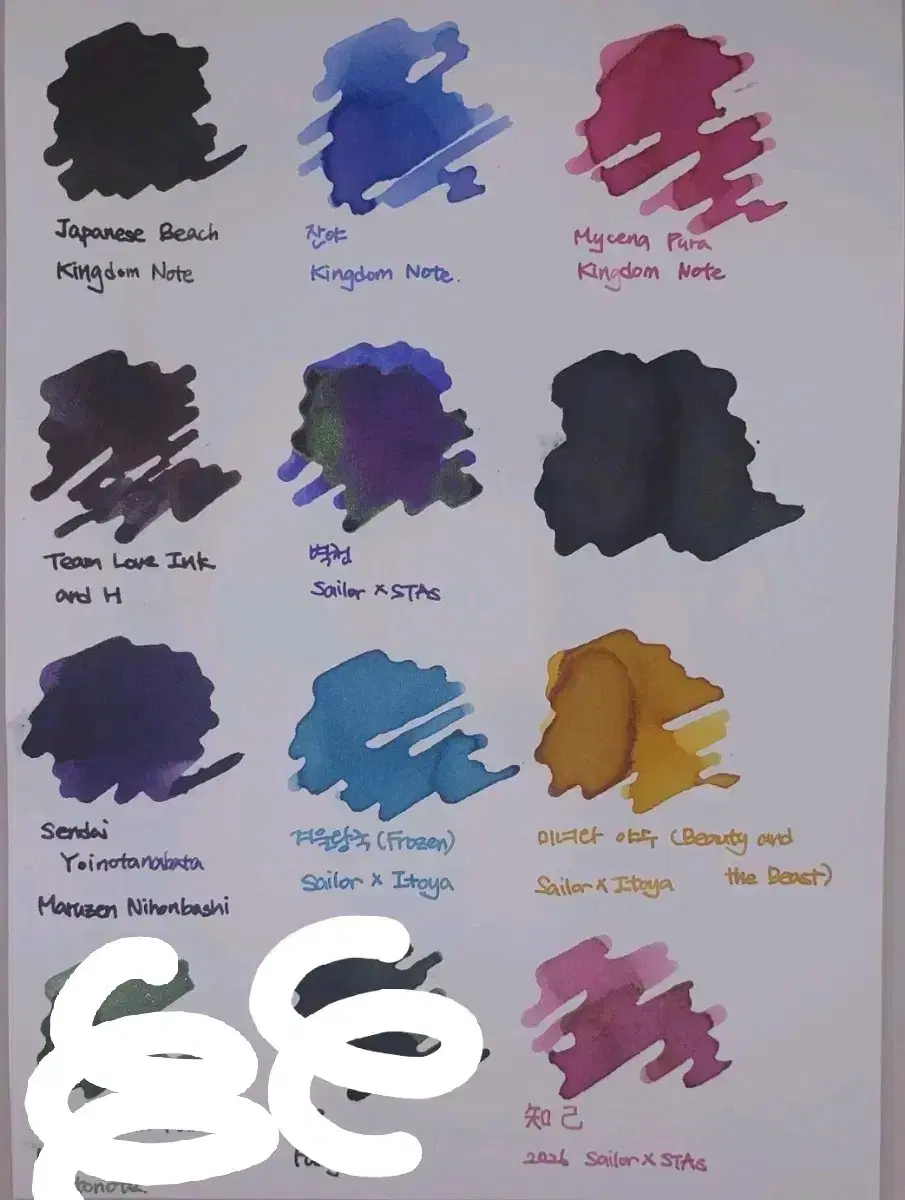 Japanese Beach
Kingdom Note
잔야
Kingdom Note.
Mycena Pura
Kingdom Note
Team Love Ink
and H
벽청
Sailor x STAs
Sendai
Yoinotanabata
Maruzen Nihonbashi
겨울왕국 (Frozen)
Sailor x Itoya
미녀와 야수 (Beauty and
the Beast)
Sailor x Itoya
知己
2026 Sailor x STAs